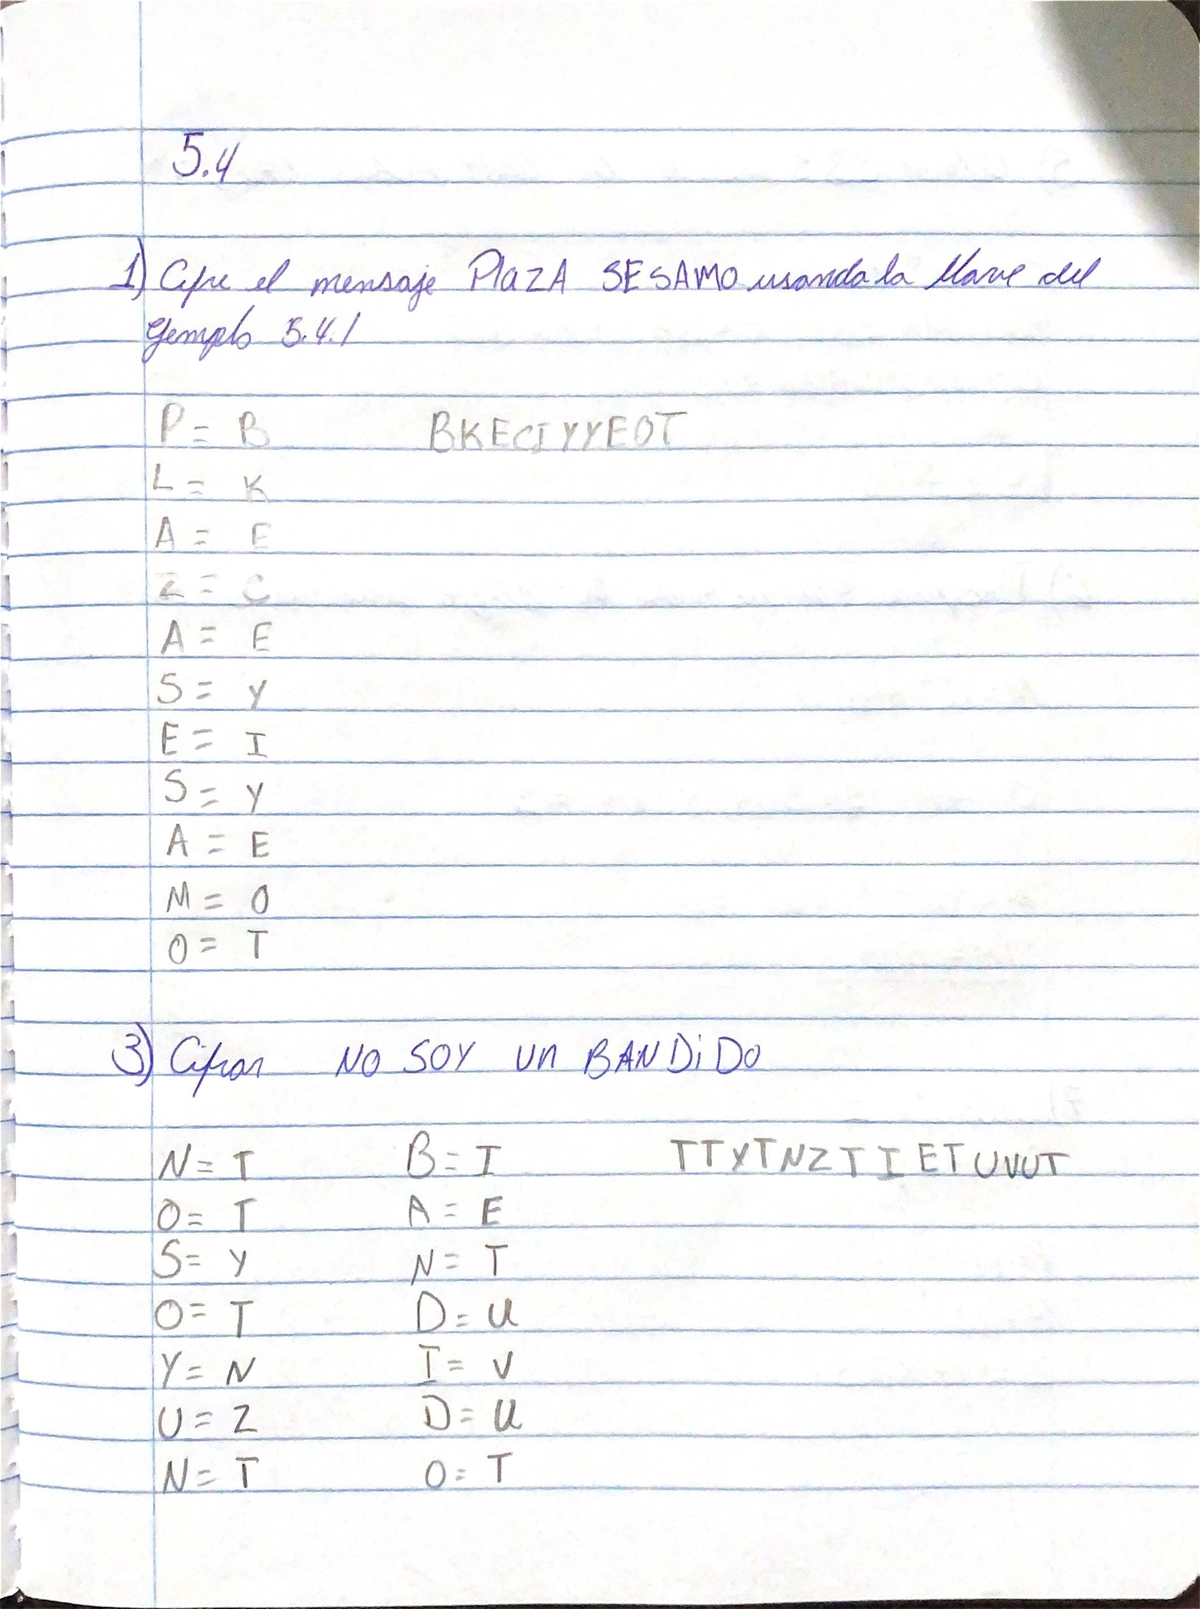 5.4
1) Cifre el mensaje PlaZA SESAMO usando la llave del
ejemplo 5.4.1
P = B BKECIYYEOT
L = K
A = E
Z = C
A = E
S = Y
E = I
S = Y
A = E
M = O
O = T
3) Cifrar NO SOY un BANDiDO
N = T B = I TTYTNZTIETUVUT
O = T A = E
S = Y N = T
O = T D = U
Y = N I = V
U = Z D = U
N = T O = T